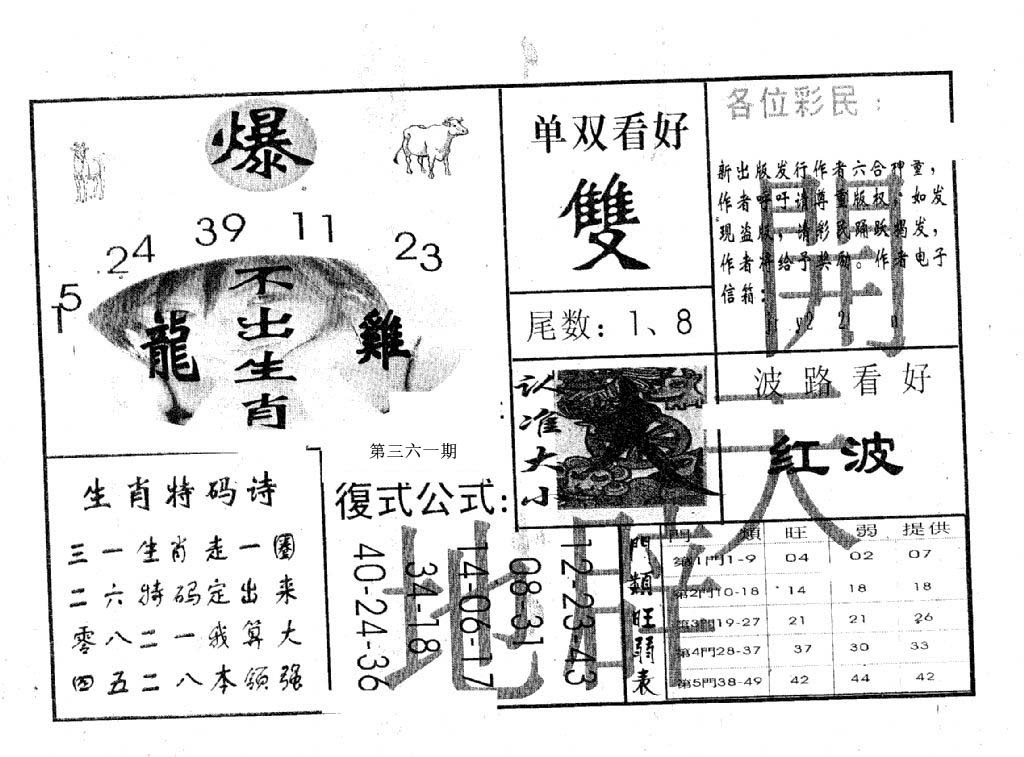 爆
24 39 11 23
15
不出生肖
龍
雞
单双看好
雙
尾数：1、8
各位彩民：
新出版发行作者六合神童，
作者呼吁请尊重版权，如发
现盗版，请彩民踊跃揭发，
作者将给予奖励。作者电子
信箱：
開
认准大小
大
波路看好
红波
第三六一期
生肖特码诗
三一生肖走一圈
二六特码定出来
零八二一我算大
四五二八本领强
復式公式：
12-23-43
08-31
14-06-17
34-18
40-24-36
地
門類旺弱表
門 類 旺 弱 提供
第1門1-9 04 02 07
第2門10-18 14 18 18
第3門19-27 21 21 26
第4門28-37 37 30 33
第5門38-49 42 44 42